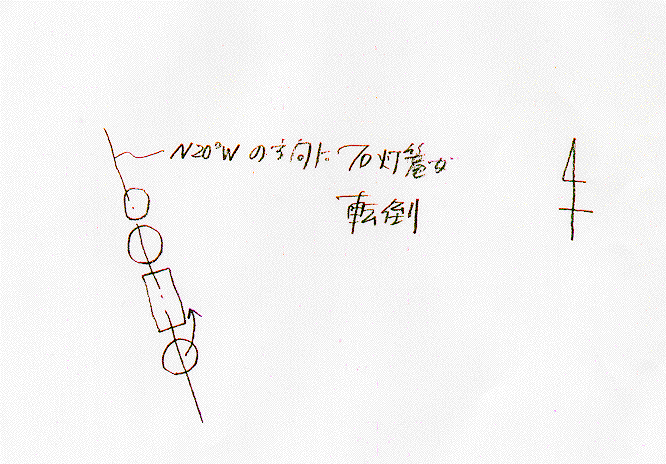 N20°Wの方向に 石灯篭が
転倒